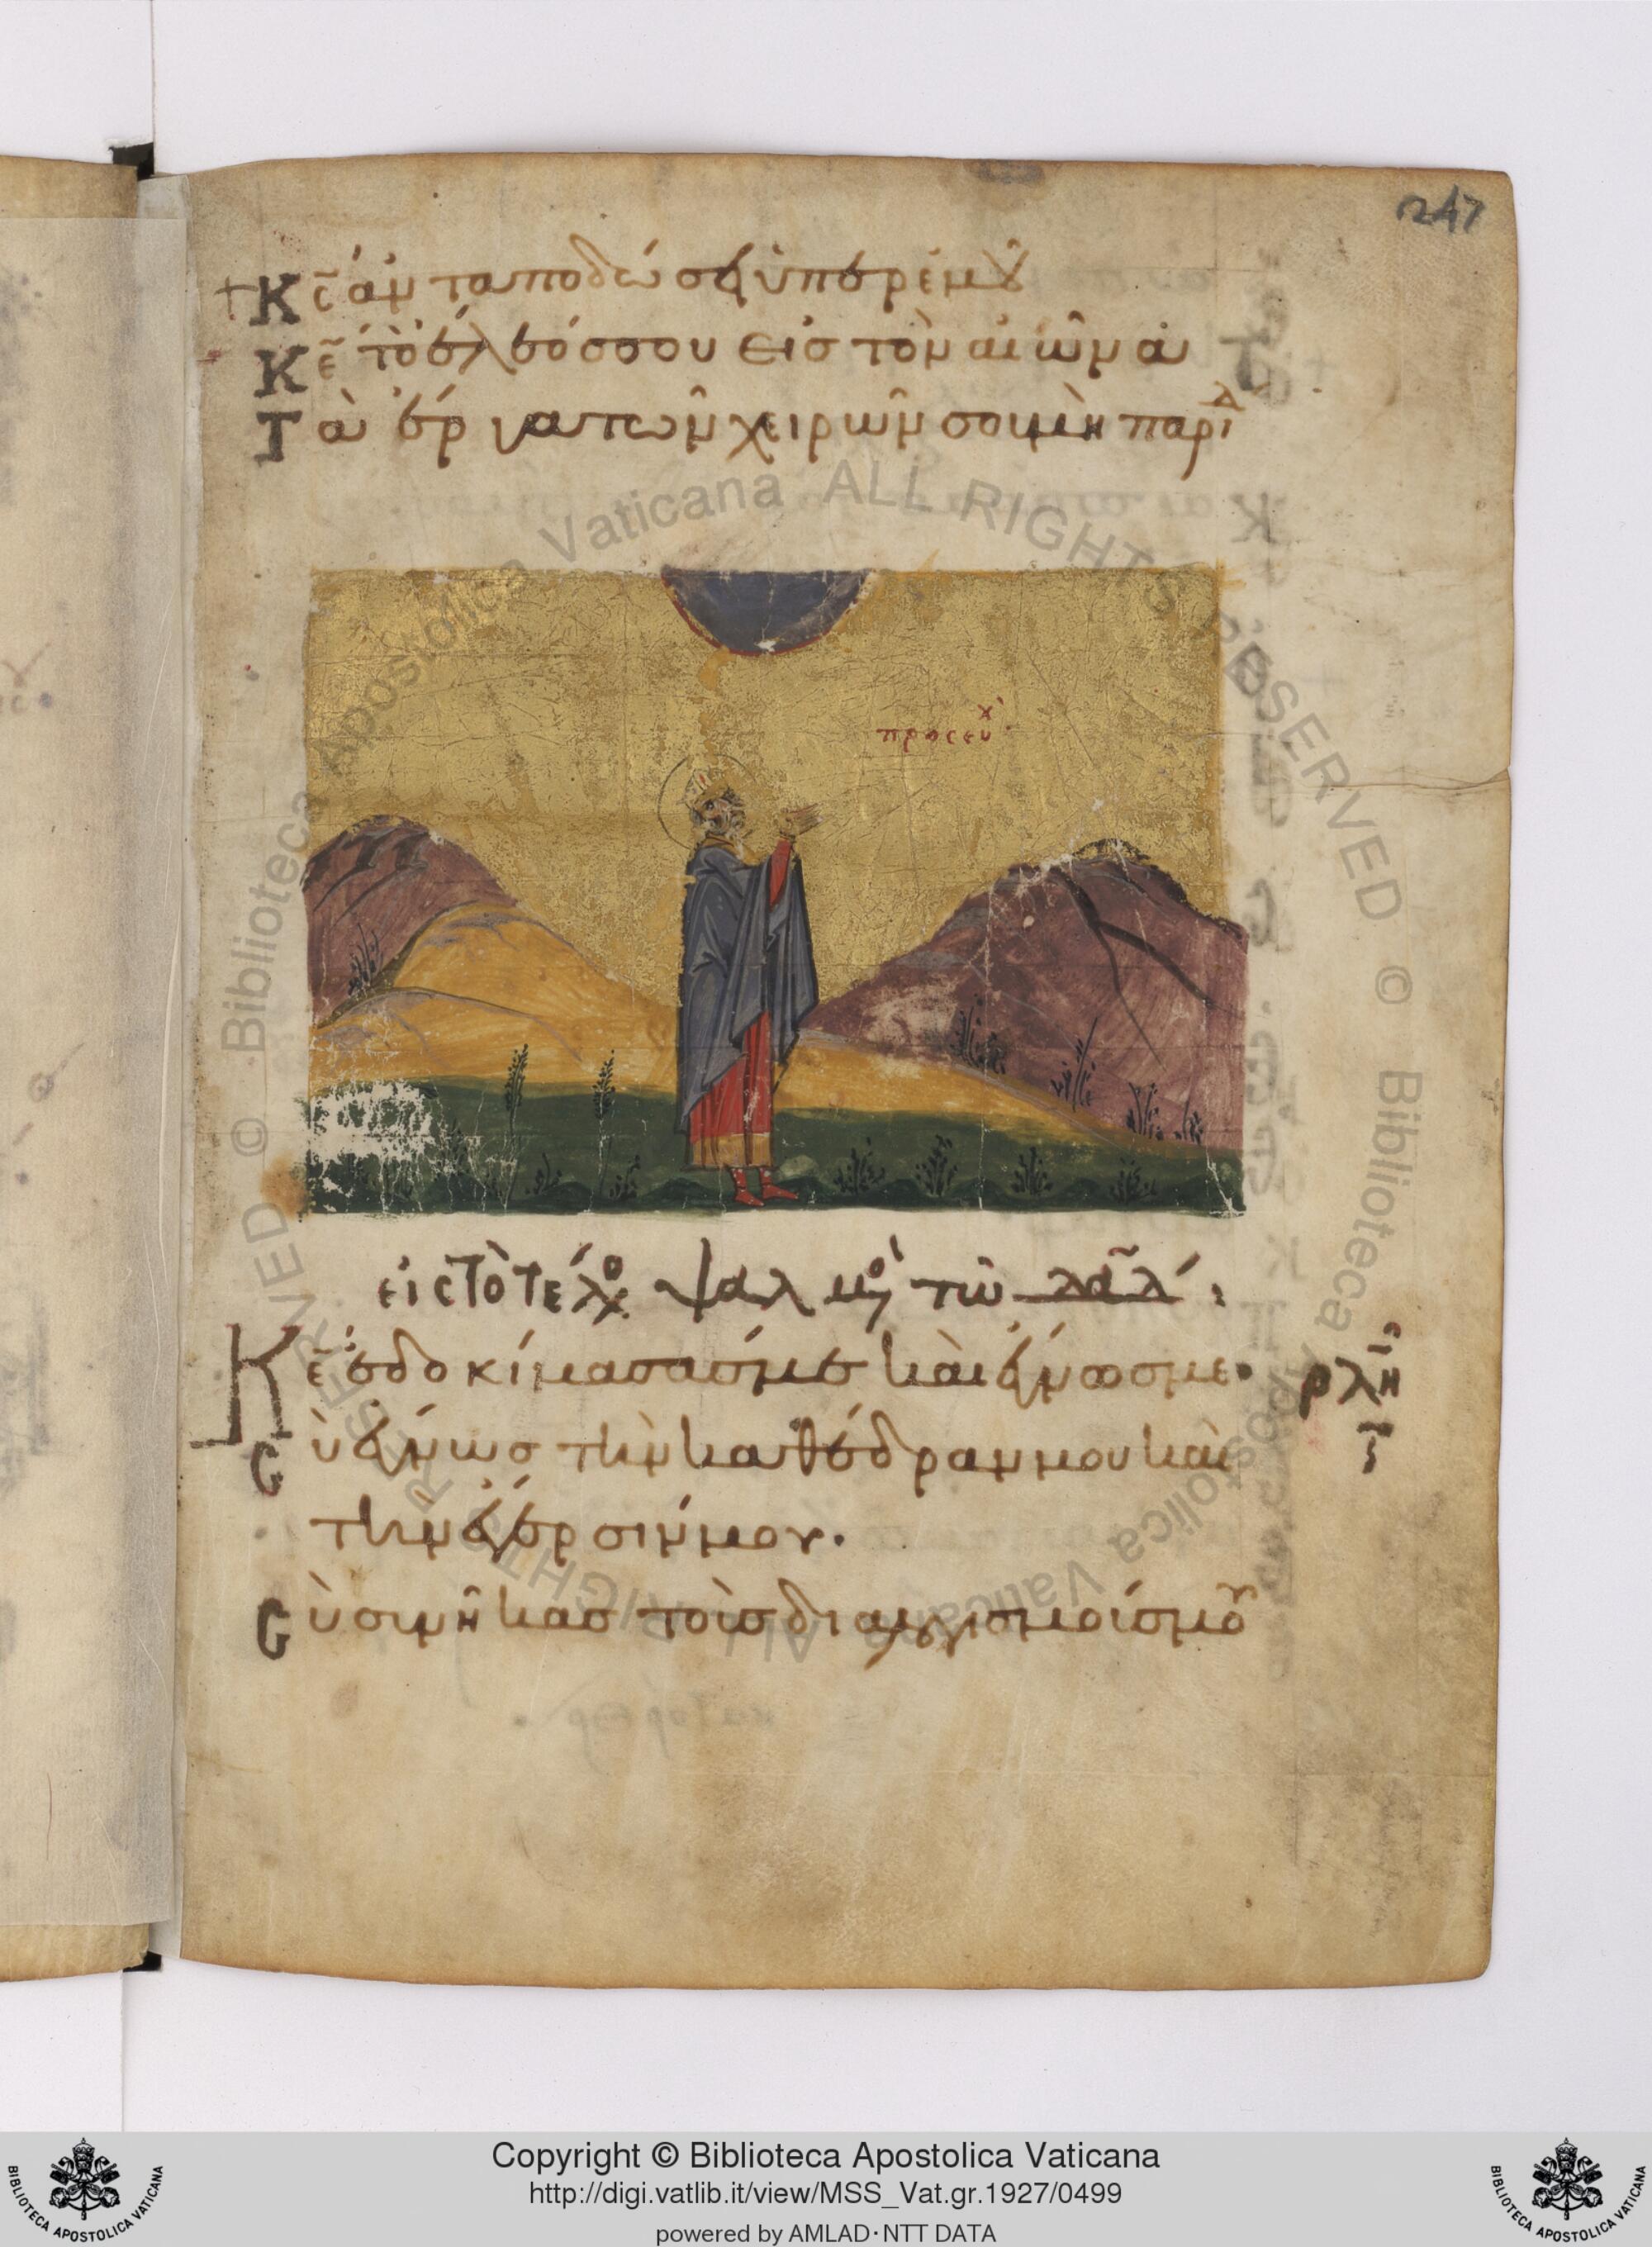 247
Κς ἀνταποδώσει ὑπὲρ ἐμοῦ
Κε τὸ ἔλεός σου εἰς τὸν αἰῶνα
Τὰ ἔργα τῶν χειρῶν σου μὴ παρίδ
προσευχ
εἰς τὸ τέλος ψαλμὸς τῶ δαδ :
Κε ἐδοκίμασάς με καὶ ἔγνως με· ρλη
Σὺ ἔγνως τὴν καθέδραν μου καὶ
τὴν ἔγερσίν μου·
Σὺ συνῆκας τοὺς διαλογισμούς μου
Copyright © Biblioteca Apostolica Vaticana
http://digi.vatlib.it/view/MSS_Vat.gr.1927/0499
powered by AMLAD·NTT DATA
BIBLIOTECA APOSTOLICA VATICANA
BIBLIOTECA APOSTOLICA VATICANA
© Biblioteca Apostolica Vaticana ALL RIGHTS RESERVED © Biblioteca Apostolica Vaticana ALL RIGHTS RESERVED